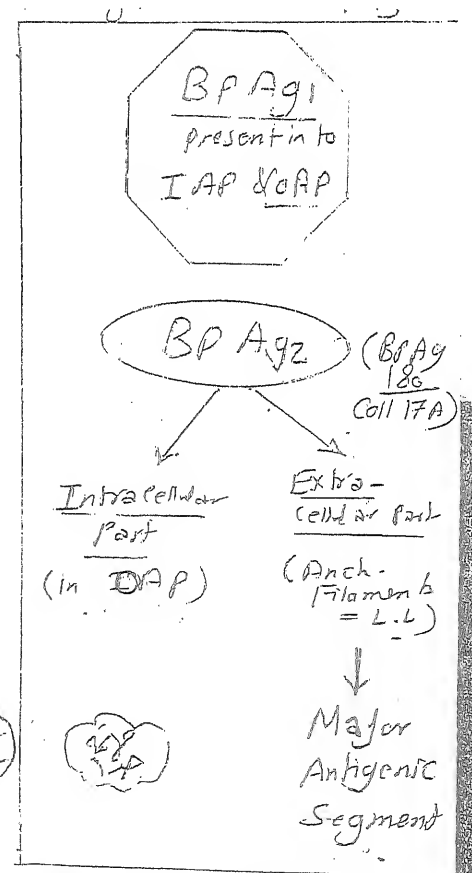 BP Ag1
present in to
IAP & OAP
BP Ag2
(BP Ag
180
Coll 17A)
Intracellular
Part
(in OAP)
Extra-
cellular Part
(Anch.
Filaments
= L.L)
Major
Antigenic
Segment